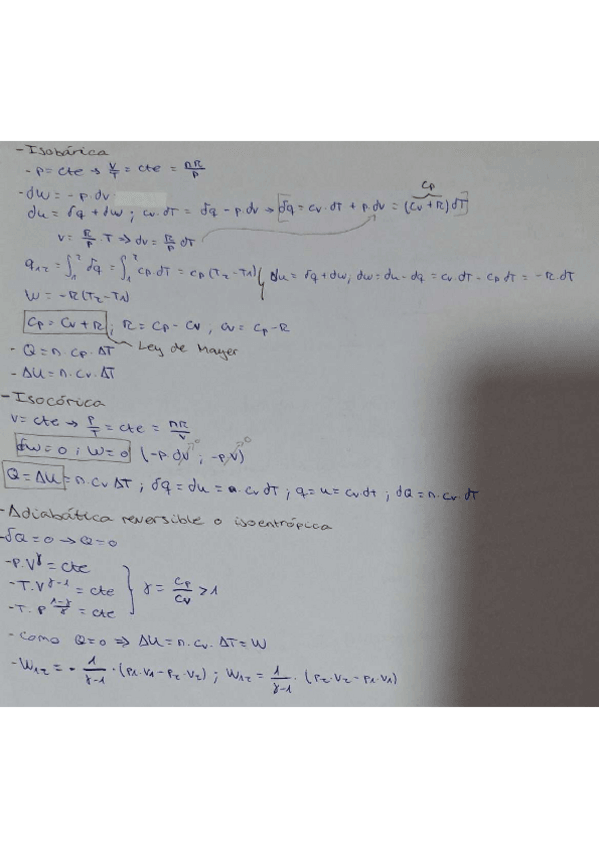 - Isobárica
- P = cte → V/T = cte = nR/P
- dw = - p.dv
du = δq + dw ; cv.dT = δq - p.dv → [δq = cv.dT + p.dv = (cv + R) dT]
cp
v = R/P . T => dv = R/P dT
q12 = ∫₁² δq = ∫₁² cp dT = cp (T2 - T1) ( du = δq + dw, dw = du - dq = cv.dT - cp dT = -R.dT
W = -R (T2 - T1)
cp = cv + R ; R = cp - cv , cv = cp - R
- Q = n. cp. ΔT
Ley de Mayer
- ΔU = n. cv. ΔT
- Isocórica
V = cte → P/T = cte = nR/V
δw = 0 ; W = 0 (-p. dV ; -p. V)
0 0
Q = ΔU = n. cv ΔT ; δq = du = n. cv dT ; q = u = cv dt ; dQ = n. cv. dT
- Adiabática reversible o isoentrópica
- δQ = 0 → Q = 0
- P. V^γ = cte
- T. V^(γ-1) = cte } γ = cp/cv > 1
- T. P^((1-γ)/γ) = cte
- Como Q = 0 => ΔU = n. cv. ΔT = W
- W12 = - 1/(γ-1) . (P1.V1 - P2.V2) ; W12 = 1/(γ-1) . (P2.V2 - P1.V1)